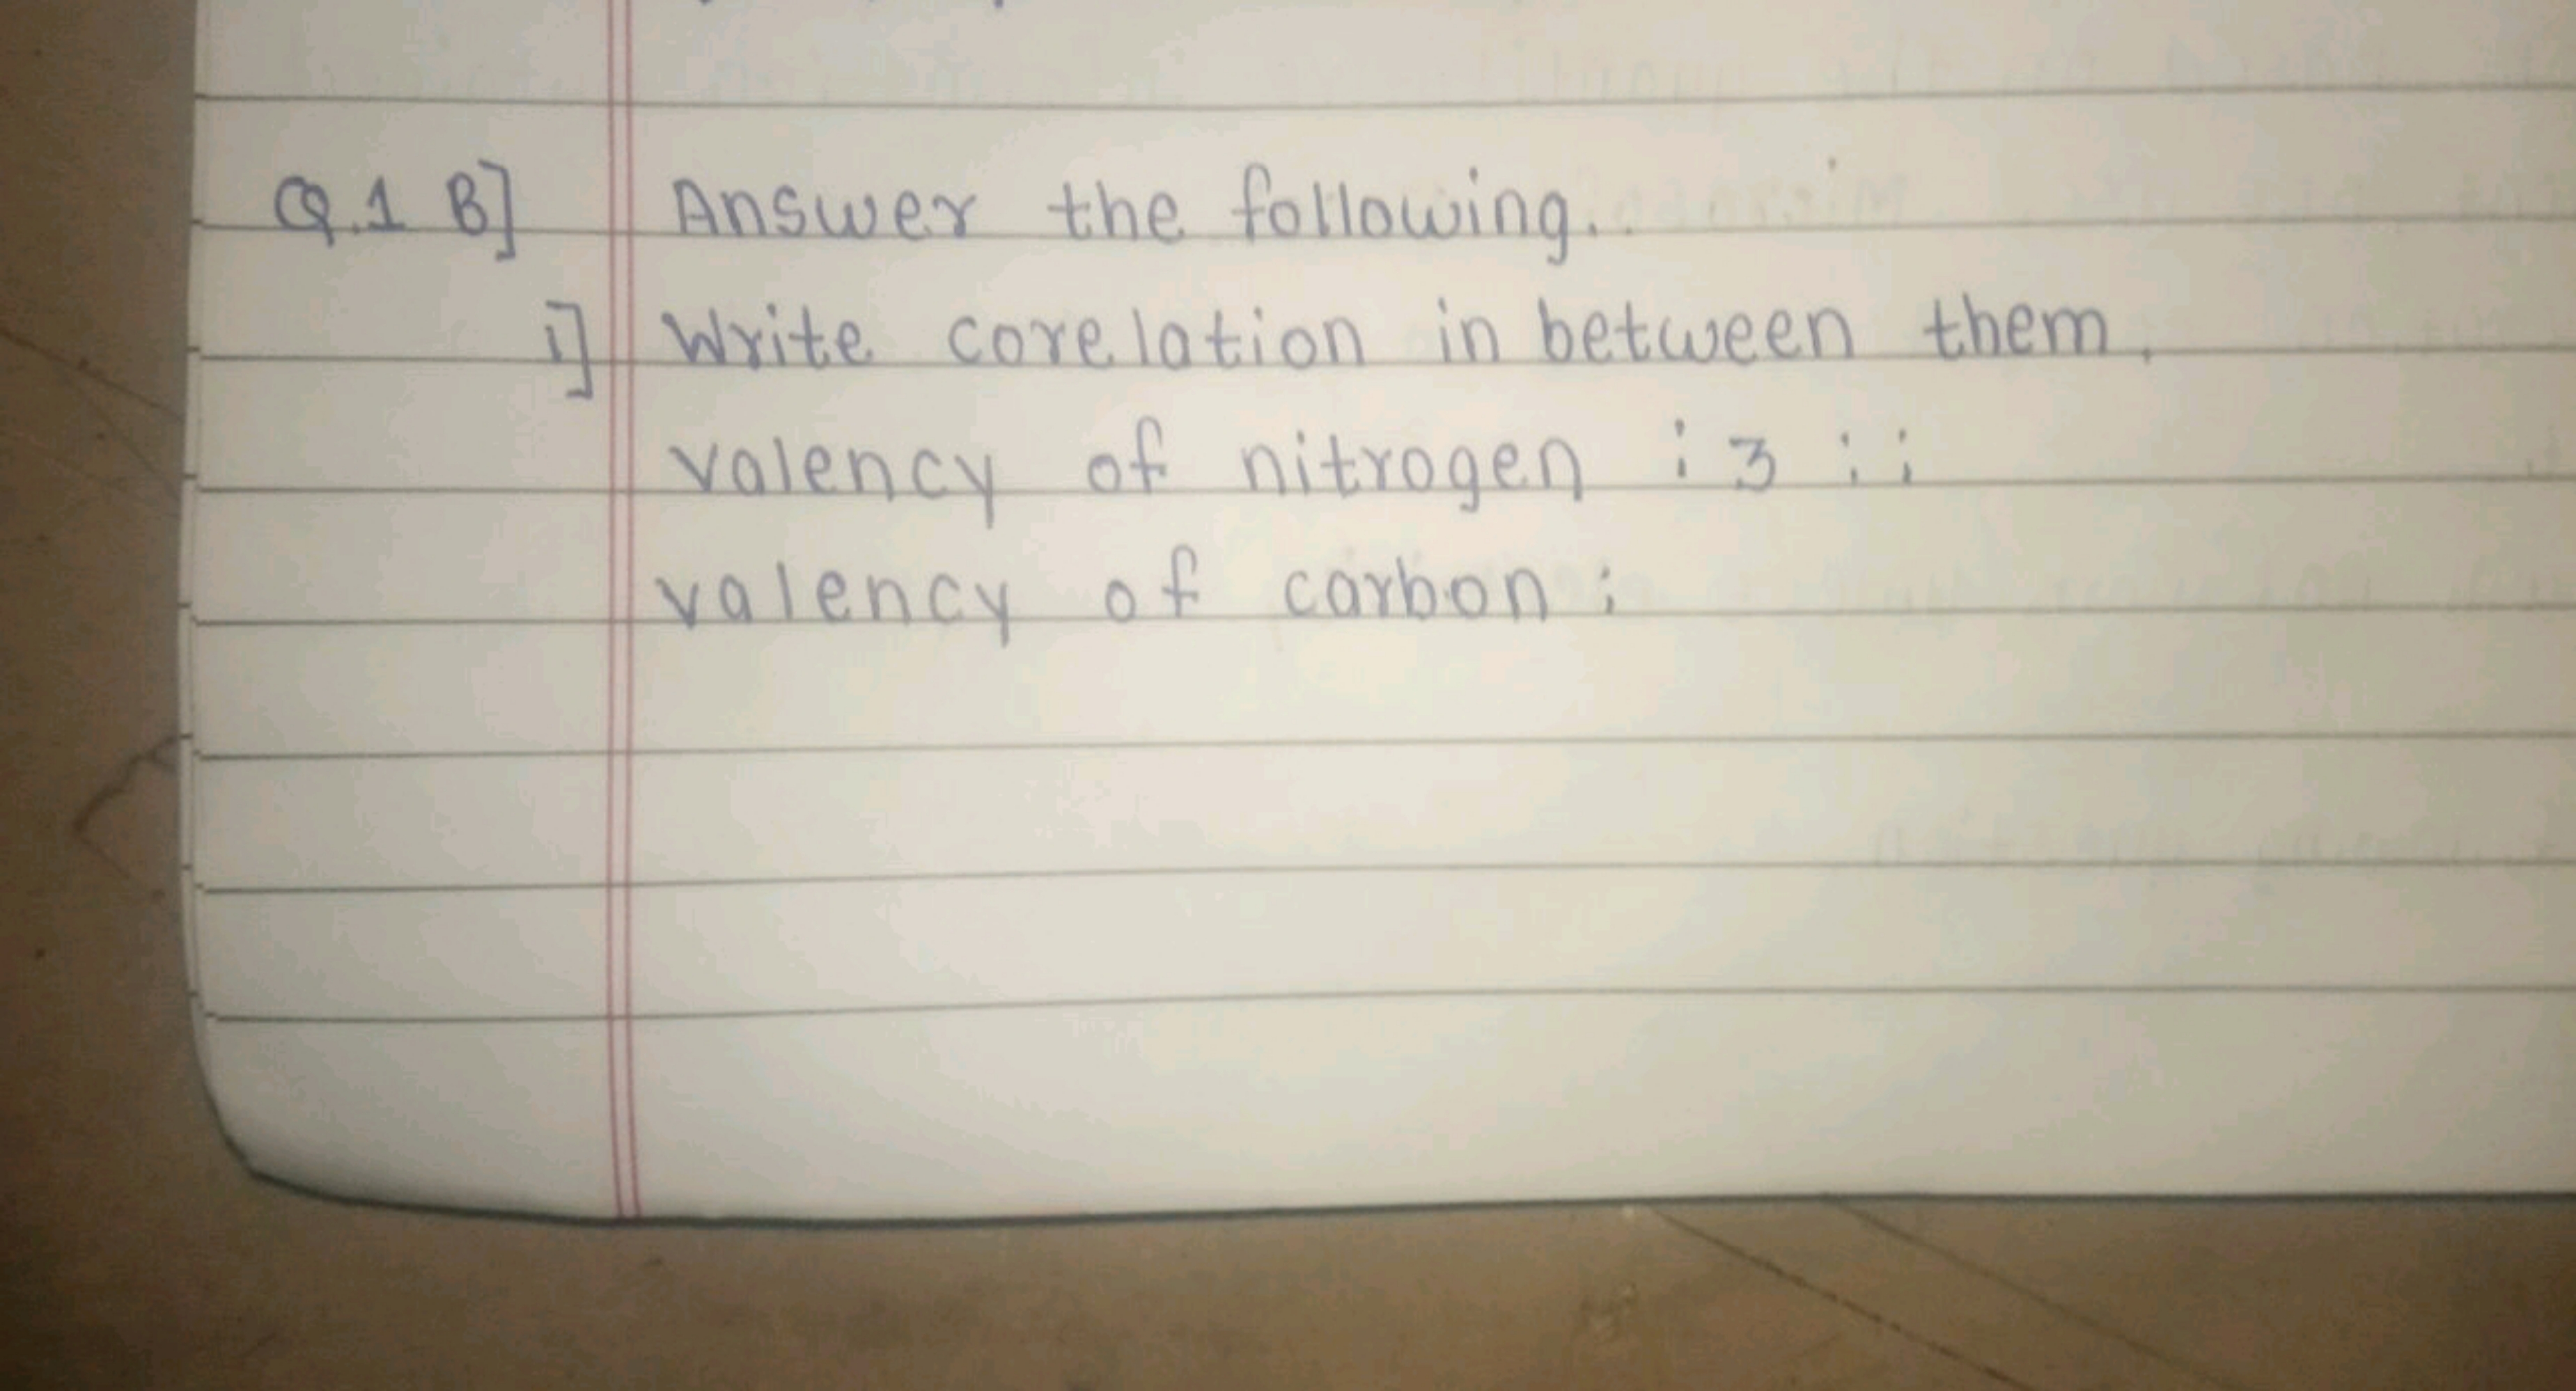 Q.1 B] Answer the following.
i] Write corelation in between them.
valency of nitrogen : 3 : :
valency of carbon :